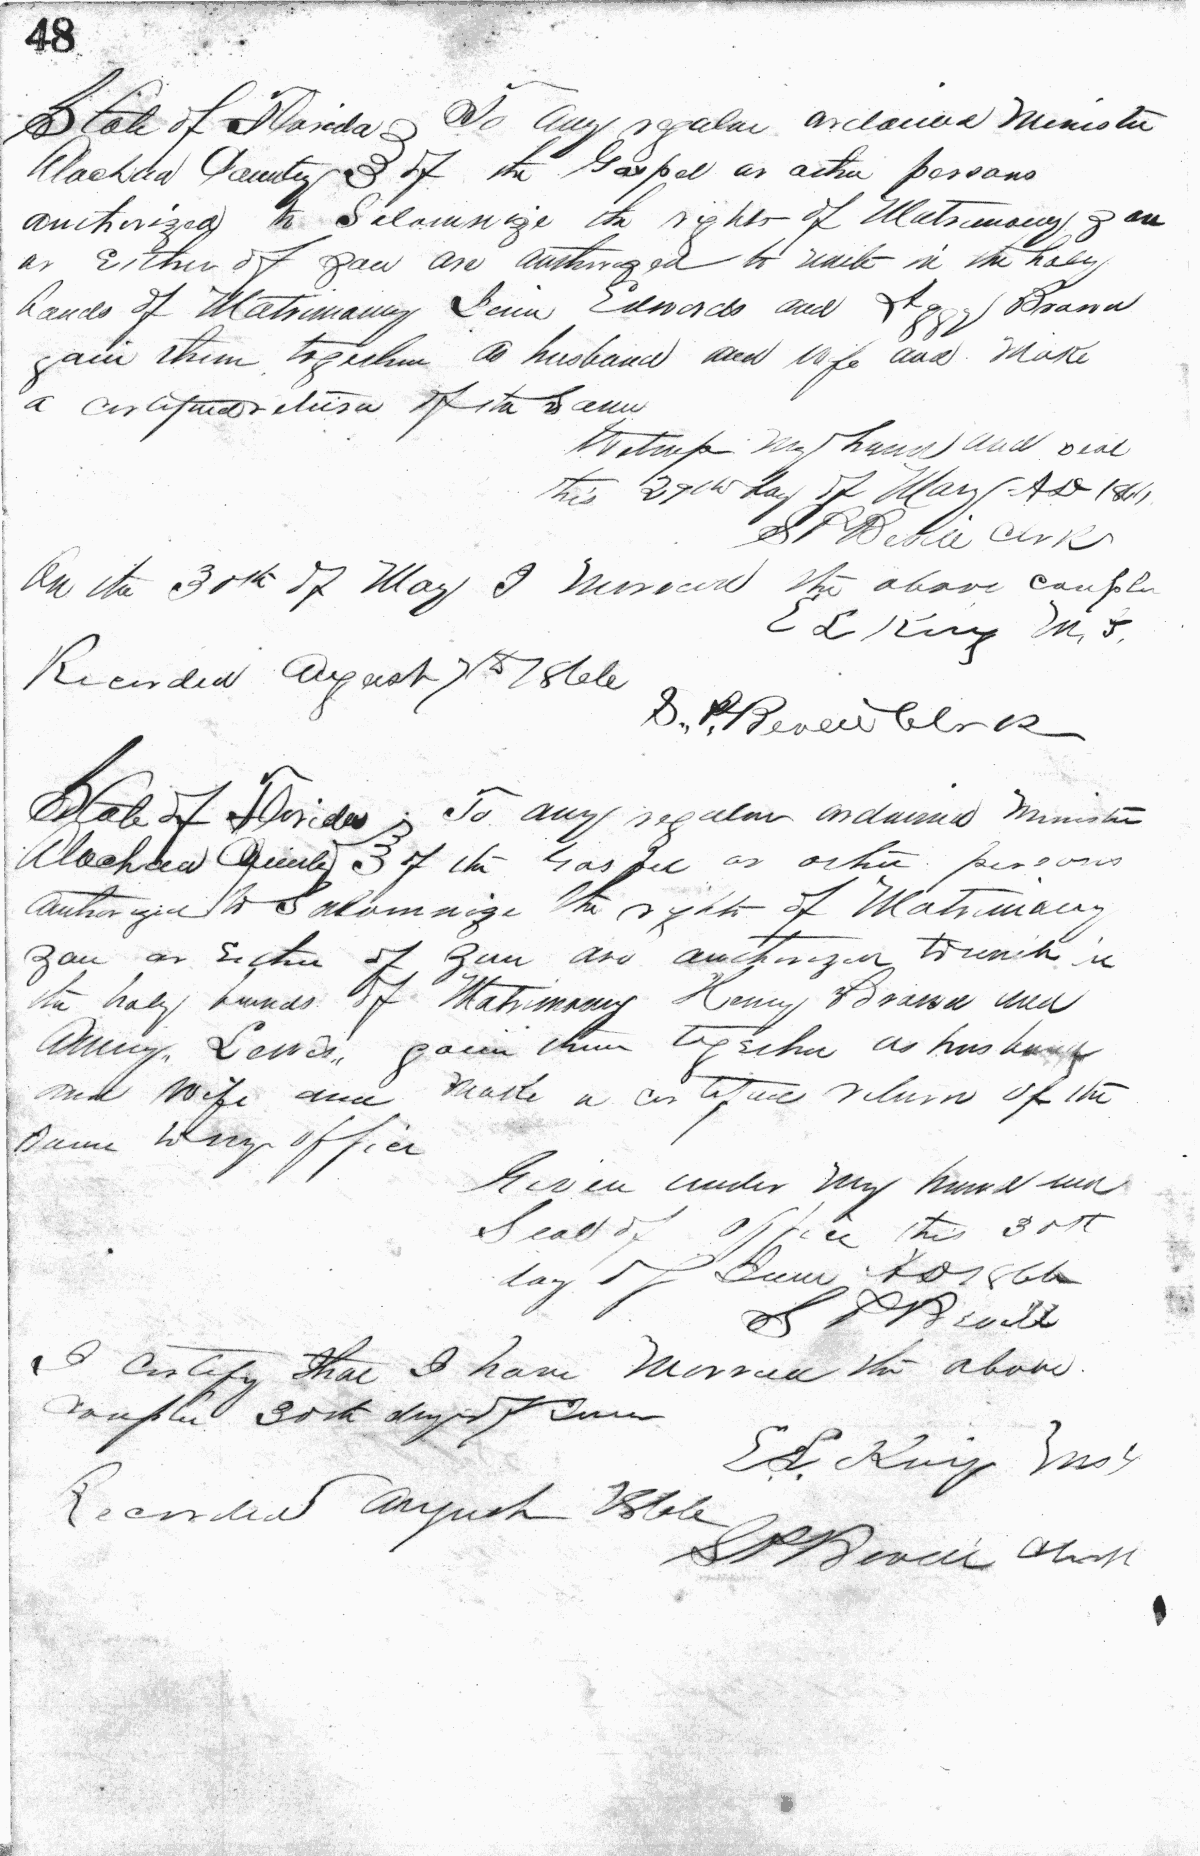 48
State of Florida } To any regular ordained Minister
Alachua County } of the Gospel or other persons
authorized to Solomnize the rights of Matrimony you
or Either of you are authorized to unite in the holy
bands of Matrimony Edwards and Brown
join them together as husband and wife and Make
a certified return of the Same
Witness my hand and seal
this 29th day of May AD 1866
S P Bevill Clerk
On the 30th of May I Married the above couple
E L King M. G.
Recorded August 7th 1866
S. P. Bevill Clerk
State of Florida } To any regular ordained Minister
Alachua County } of the Gospel or other persons
authorized to Solomnize the rights of Matrimony
you or Either of you are authorized to unite in
the holy bands of Matrimony Henry Brown and
Lewis join them together as husband
and wife and make a certified return of the
same to my office
Given under my hand and
Seal of office this 30th
day of June AD 1866
S P Bevill
I certify that I have Married the above
couple 30th day of June
E. L. King
Recorded August 1866
S P Bevill Clerk